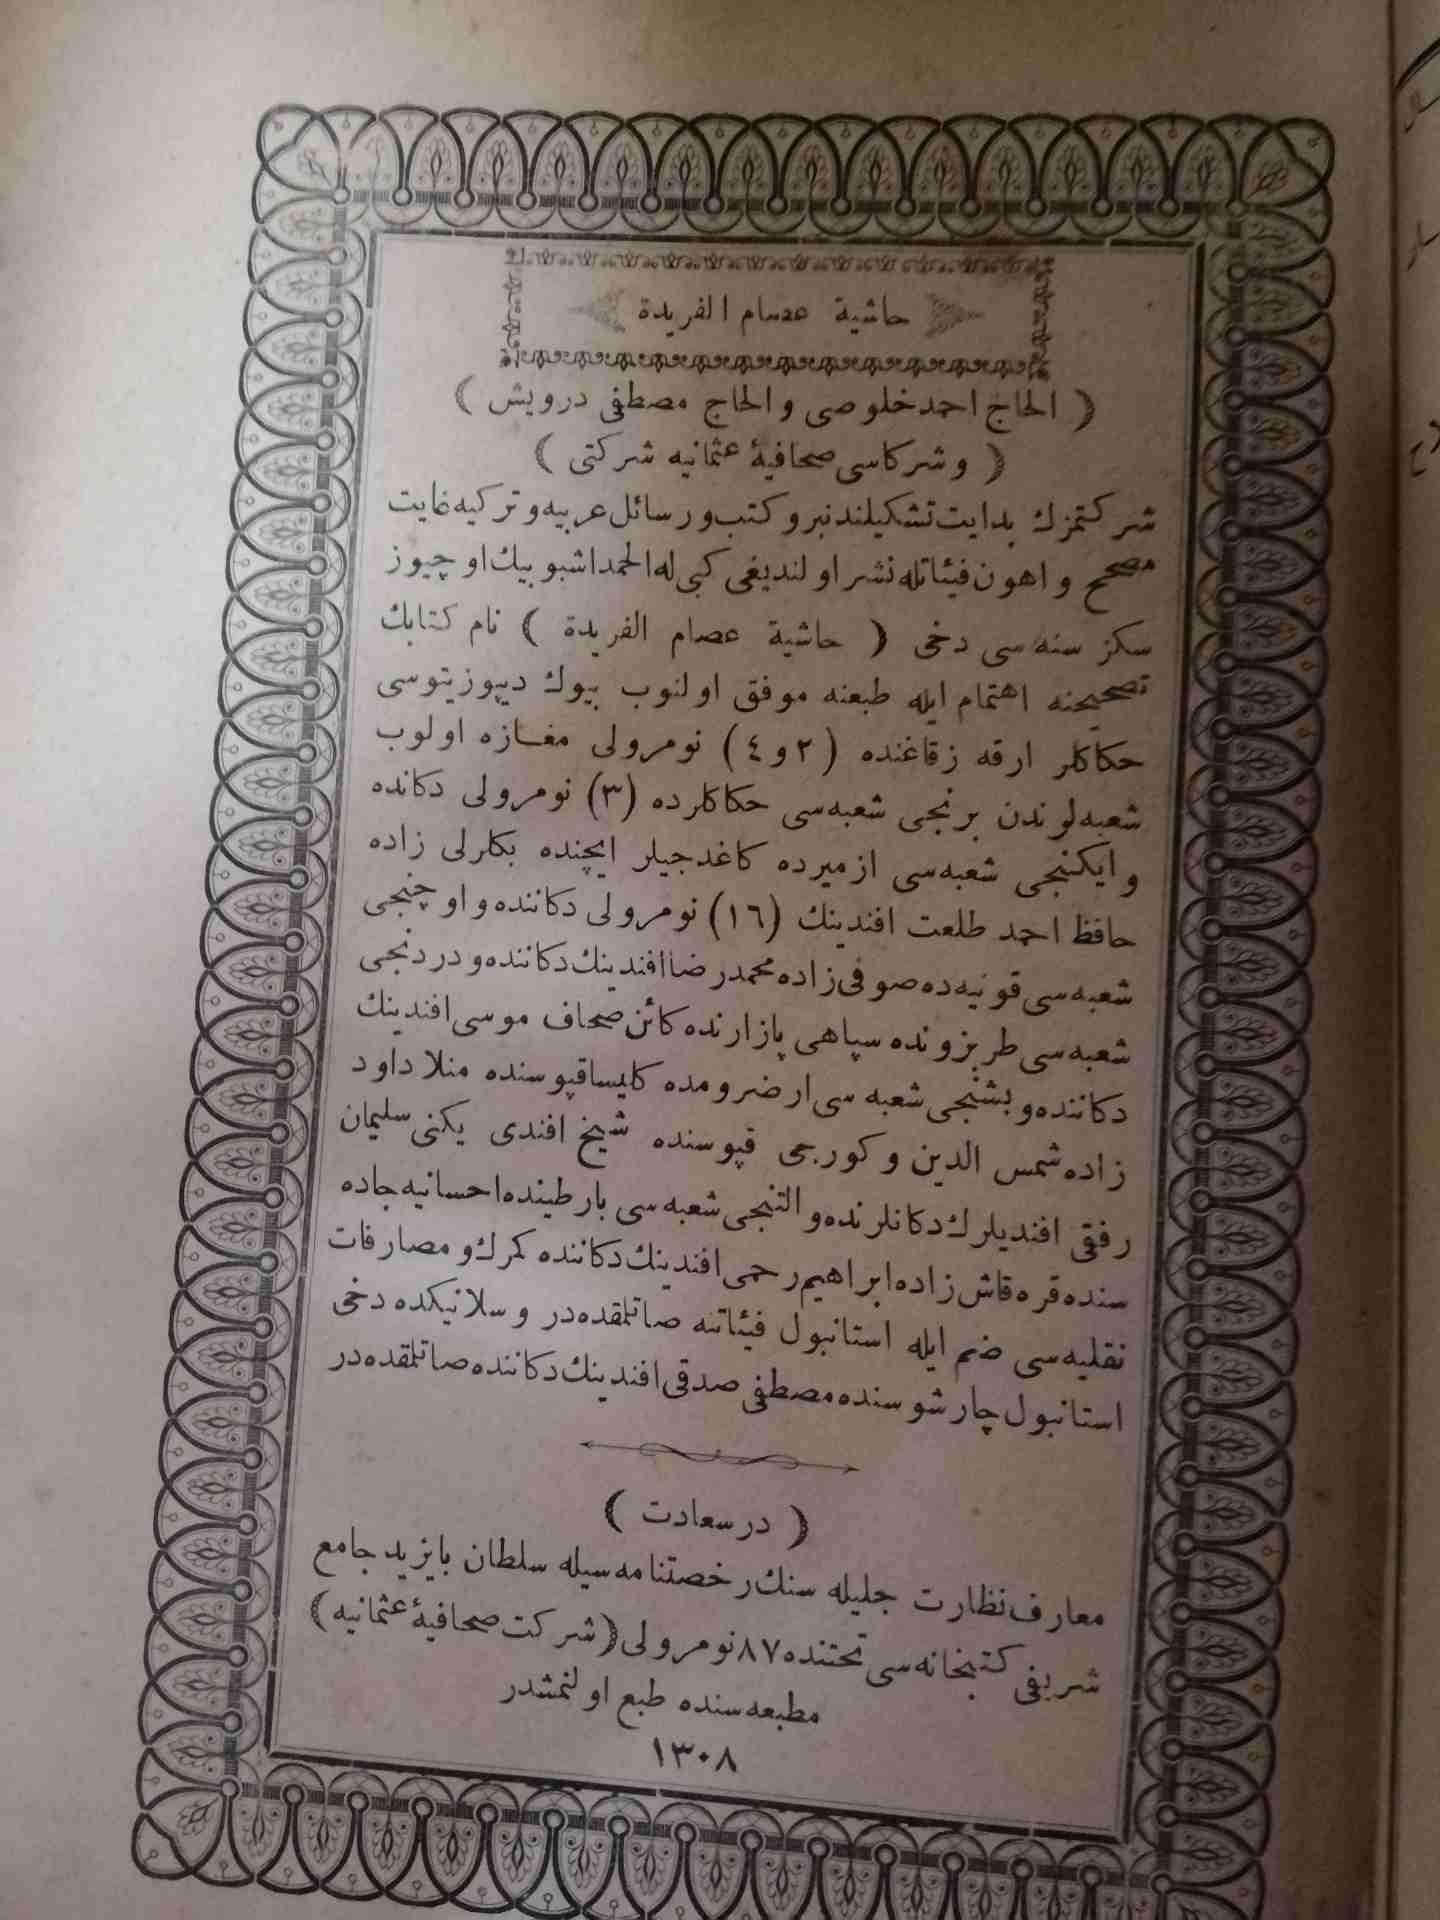 حاشية عصام الفريدة
( الحاج احمد خلوصی والحاج مصطفی درویش )
( وشرکاسی صحافیۀ عثمانیه شرکتی )
شرکتمزك بدایت تشکیلندنبرو کتب ورسائل عربیه وترکیه غایت
مصحح واهون فیئاتله نشر اولندیغی کبی له الحمد اشبو بیك اوچیوز
سکز سنه سی دخی ( حاشیة عصام الفریدة ) نام کتابك
تصحیحنه اهتمام ایله طبعنه موفق اولنوب بیوك دیپوزیتوسی
حکاکلر ارقه زقاغنده (٢ و ٤) نومرولی مغازه اولوب
شعبه لوندن برنجی شعبه سی حکاکلرده (٣) نومرولی دکانده
وایکنجی شعبه سی ازمیرده کاغدجیلر ایچنده بکارلی زاده
حافظ احمد طلعت افندینك (١٦) نومرولی دکاننده واوچنجی
شعبه سی قونیه ده صوفی زاده محمد رضا افندینك دکاننده ودردنجی
شعبه سی طربزونده سپاهی پازارنده کائن صحاف موسی افندینك
دکاننده وبشنجی شعبه سی ارضرومده کلیسا قپوسنده منلا داود
زاده شمس الدین وکورجی قپوسنده شیخ افندی یکنی سلیمان
رفقی افندیلرك دکانلرنده والتنجی شعبه سی بارطینده احسانیه جاده
سنده قره قاش زاده ابراهیم رحمی افندینك دکاننده کمرك ومصارفات
نقلیه سی ضم ایله استانبول فیئاتنه صاتلمقده در وسلانیکده دخی
استانبول چارشوسنده مصطفی صدقی افندینك دکاننده صاتلمقده در
( درسعادت )
معارف نظارت جلیله سنك رخصتنامه سیله سلطان بایزید جامع
شریفی کتبخانه سی تحتنده ٨٧ نومرولی (شرکت صحافیۀ عثمانیه)
مطبعه سنده طبع اولنمشدر
١٣٠٨